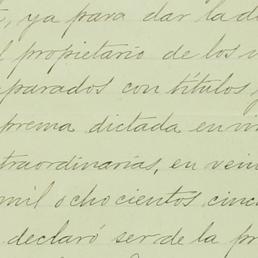 , ya para dar la d
l propietario de los
parados con títulos y
prema dictada en vi
traordinarias, en vein
mil ochocientos cinc
declaró ser de la pr